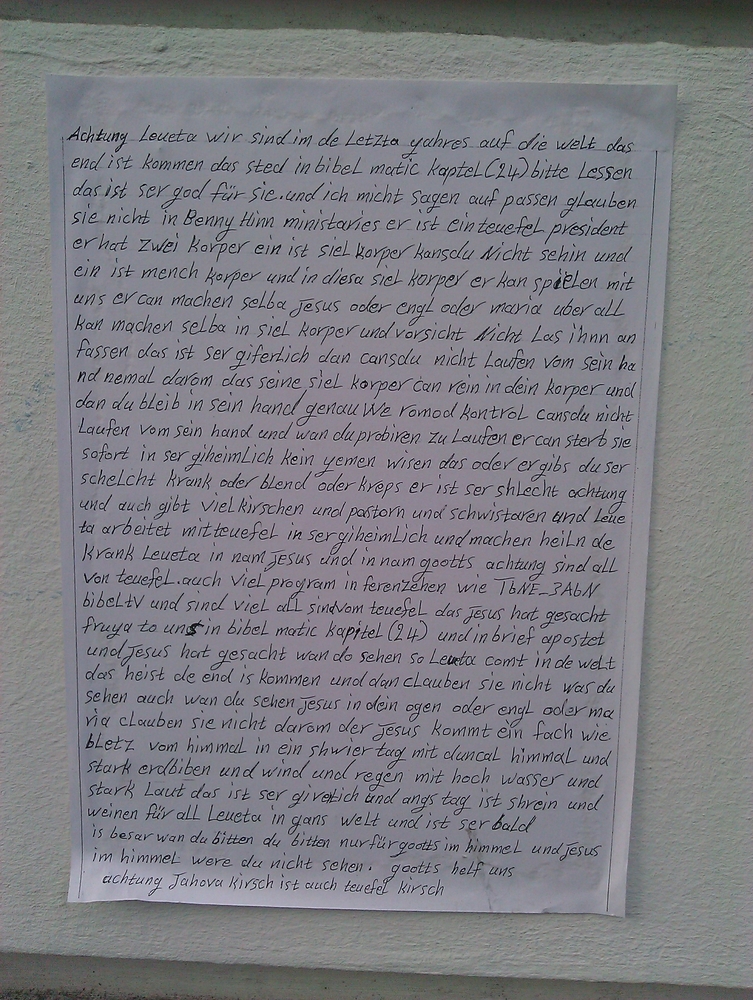 Achtung Leueta wir sind im de Letzta yahres auf die welt das
end ist kommen das sted in bibel matic kaptel (24) bitte Lessen
das ist ser god für sie. und ich micht sagen auf passen glauben
sie nicht in Benny Hinn ministaries er ist ein teuefel president
er hat zwei korper ein ist siel korper kansdu Nicht sehin und
ein ist mench korper und in diesa siel korper er kan spielen mit
uns er can machen selba Jesus oder engl oder maria uber all
kan machen selba in siel korper und vorsicht Nicht Las ihnn an
fassen das ist ser giferlich dan cansdu nicht Laufen vom sein ha
nd nemal darom das seine siel korper can rein in dein korper und
dan du bleib in sein hand genau We romod kontrol cansdu nicht
Laufen vom sein hand und wan du probiren zu Laufen er can sterb sie
sofort in ser giheimlich kein yemen wisen das oder er gibs du ser
schelcht krank oder blend oder kreps er ist ser shlecht achtung
und auch gibt viel kirschen und pastorn und schwistaren und Leue
ta arbeitet mit teuefel in ser giheimlich und machen heiln de
krank Leueta in nam Jesus und in nam gootts achtung sind all
von teuefel. auch viel program in ferenzehen wie TbNE_3AbN
bibeltv und sind viel all sind vom teuefel das Jesus hat gesacht
fruya to uns in bibel matic kapitel (24) und in brief apostet
und Jesus hat gesacht wan do sehen so Leuta comt in de welt
das heist de end is kommen und dan clauben sie nicht was du
sehen auch wan du sehen Jesus in dein ogen oder engl oder ma
ria clauben sie nicht darom der Jesus kommt ein fach wie
bletz vom himmal in ein shwier tag mit duncal himmal und
stark erdbiben und wind und regen mit hoch wasser und
stark Laut das ist ser und angs tag ist shrein und
weinen für all Leueta in gans welt und ist ser bald
is besar wan du bitten du bitten nur für gootts im himmel und Jesus
im himmel were du nicht sehen. gootts helf uns
achtung Jahova kirsch ist auch teuefel kirsch